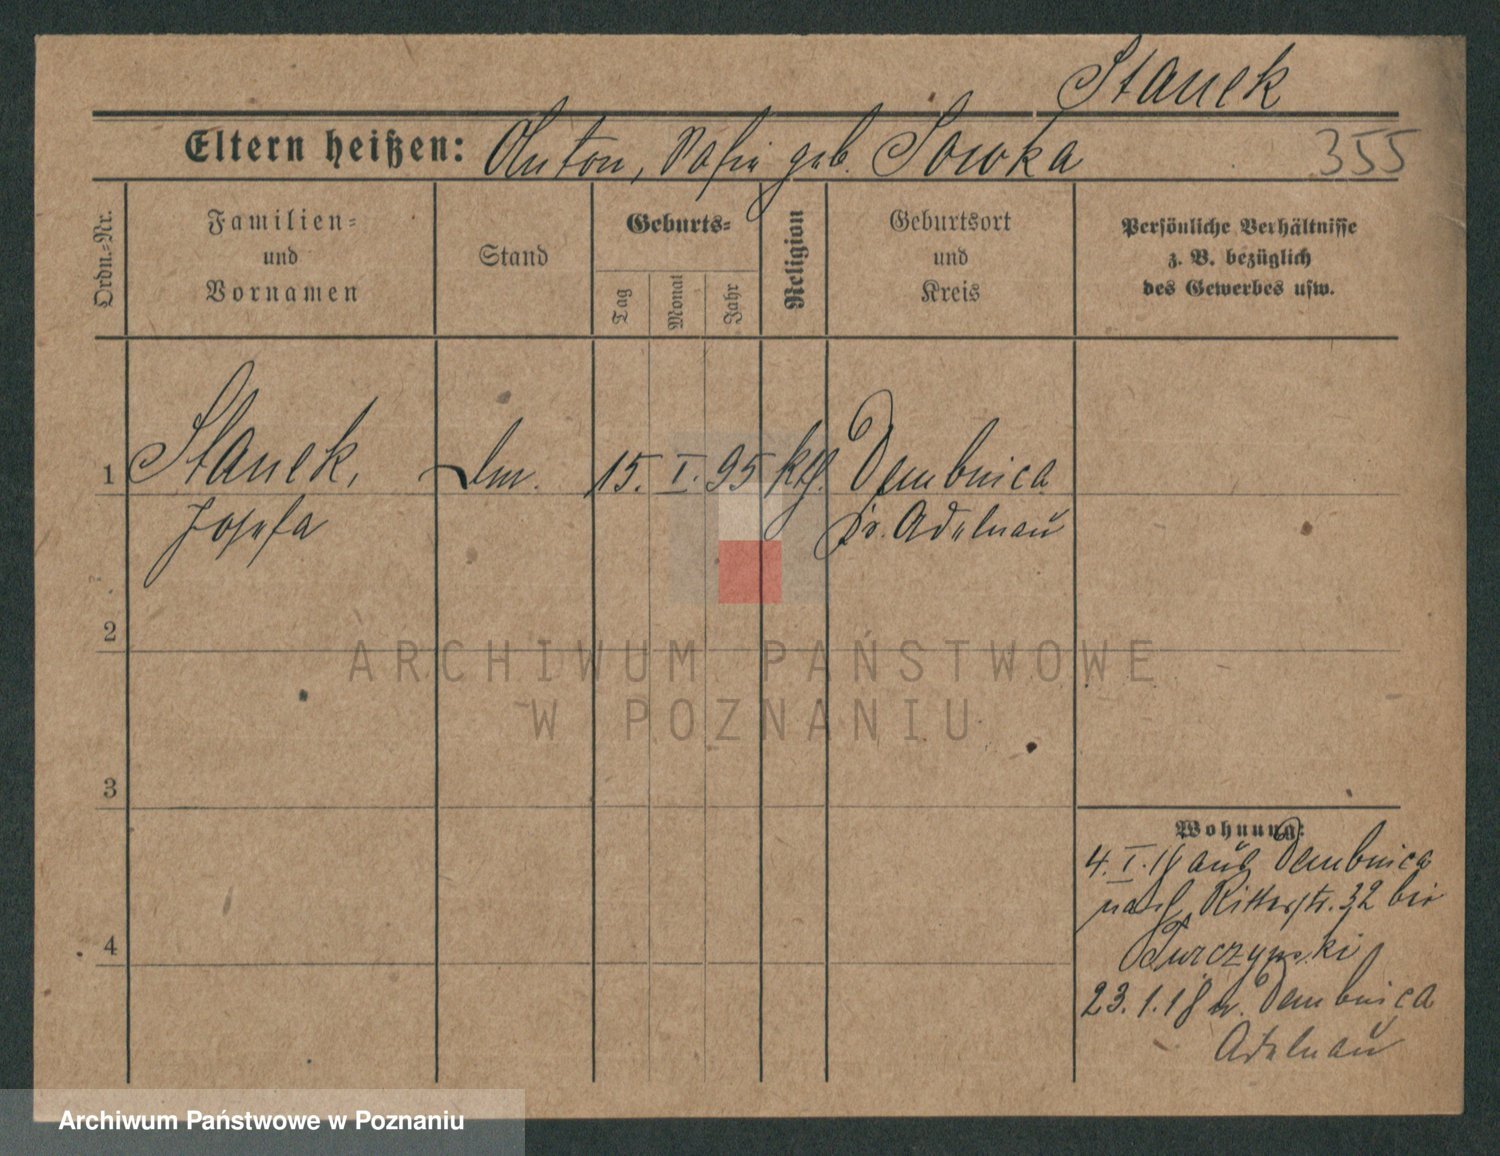 Stanek
Eltern heißen: Anton, Sofie geb. Sowka
355
Ordn.=Nr.
Familien=
und
Vornamen
Stand
Geburts=
Tag
Monat
Jahr
Religion
Geburtsort
und
Kreis
Persönliche Verhältnisse
z. B. bezüglich
des Gewerbes usw.
1 Stanek, 15. I. 95 kth. Dembnica
Josefa Kr. Adelnau
2
3
4
Wohnung:
4. I. 18 aus Dembnica
nach Ritterstr. 32 bei
23.1.18 n. Dembnica
Adelnau
ARCHIWUM PAŃSTWOWE
W POZNANIU
Archiwum Państwowe w Poznaniu